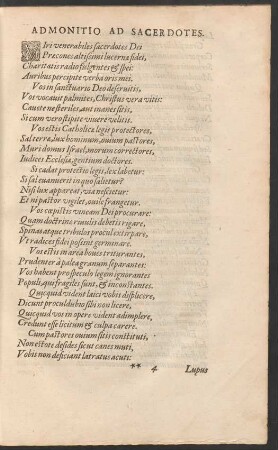 ADMONITIO AD SACERDOTES.
VIri venerabiles sacerdotes Dei
Præcones altissimi lucerna fidei,
Charitatis radio fulgentes & spei:
Auribus percipite verba oris mei.
Vos in sanctuario Deo deseruitis,
Vos vocauit palmites, Christus vera vitis:
Cauete ne steriles, aut inanes sitis,
Si cum vero stipite viuere velitis.
Vos estis Catholicæ legis protectores,
Sal terræ, lux hominum, ouium pastores,
Muri domus Israel, morum correctores,
Iudices Ecclesiæ, gentium doctores.
Si cadat protectio legis, lex labetur:
Si sal euanuerit in quo salietur?
Nisi lux appareat, via nescietur:
Et ni pastor vigilet, ouile frangetur.
Vos cœpistis vineam Dei procurare:
Quam doctrinæ riuulis debetis rigare,
Spinas atque tribulos procul extirpare,
Vt radices fidei possent germinare.
Vos estis in area boues triturantes,
Prudenter à palea granum separantes:
Vos habent pro speculo legem ignorantes
Populi, qui fragiles sunt, & inconstantes.
Quicquid vident laici vobis displicere,
Dicunt proculdubio sibi non licere,
Quicquid vos in opere vident adimplere,
Credunt esse licitum & culpa carere.
Cum pastores ouium sitis constituti,
Non estote desides sicut canes muti,
Vobis non deficiant latratus acuti:
** 4 Lupus